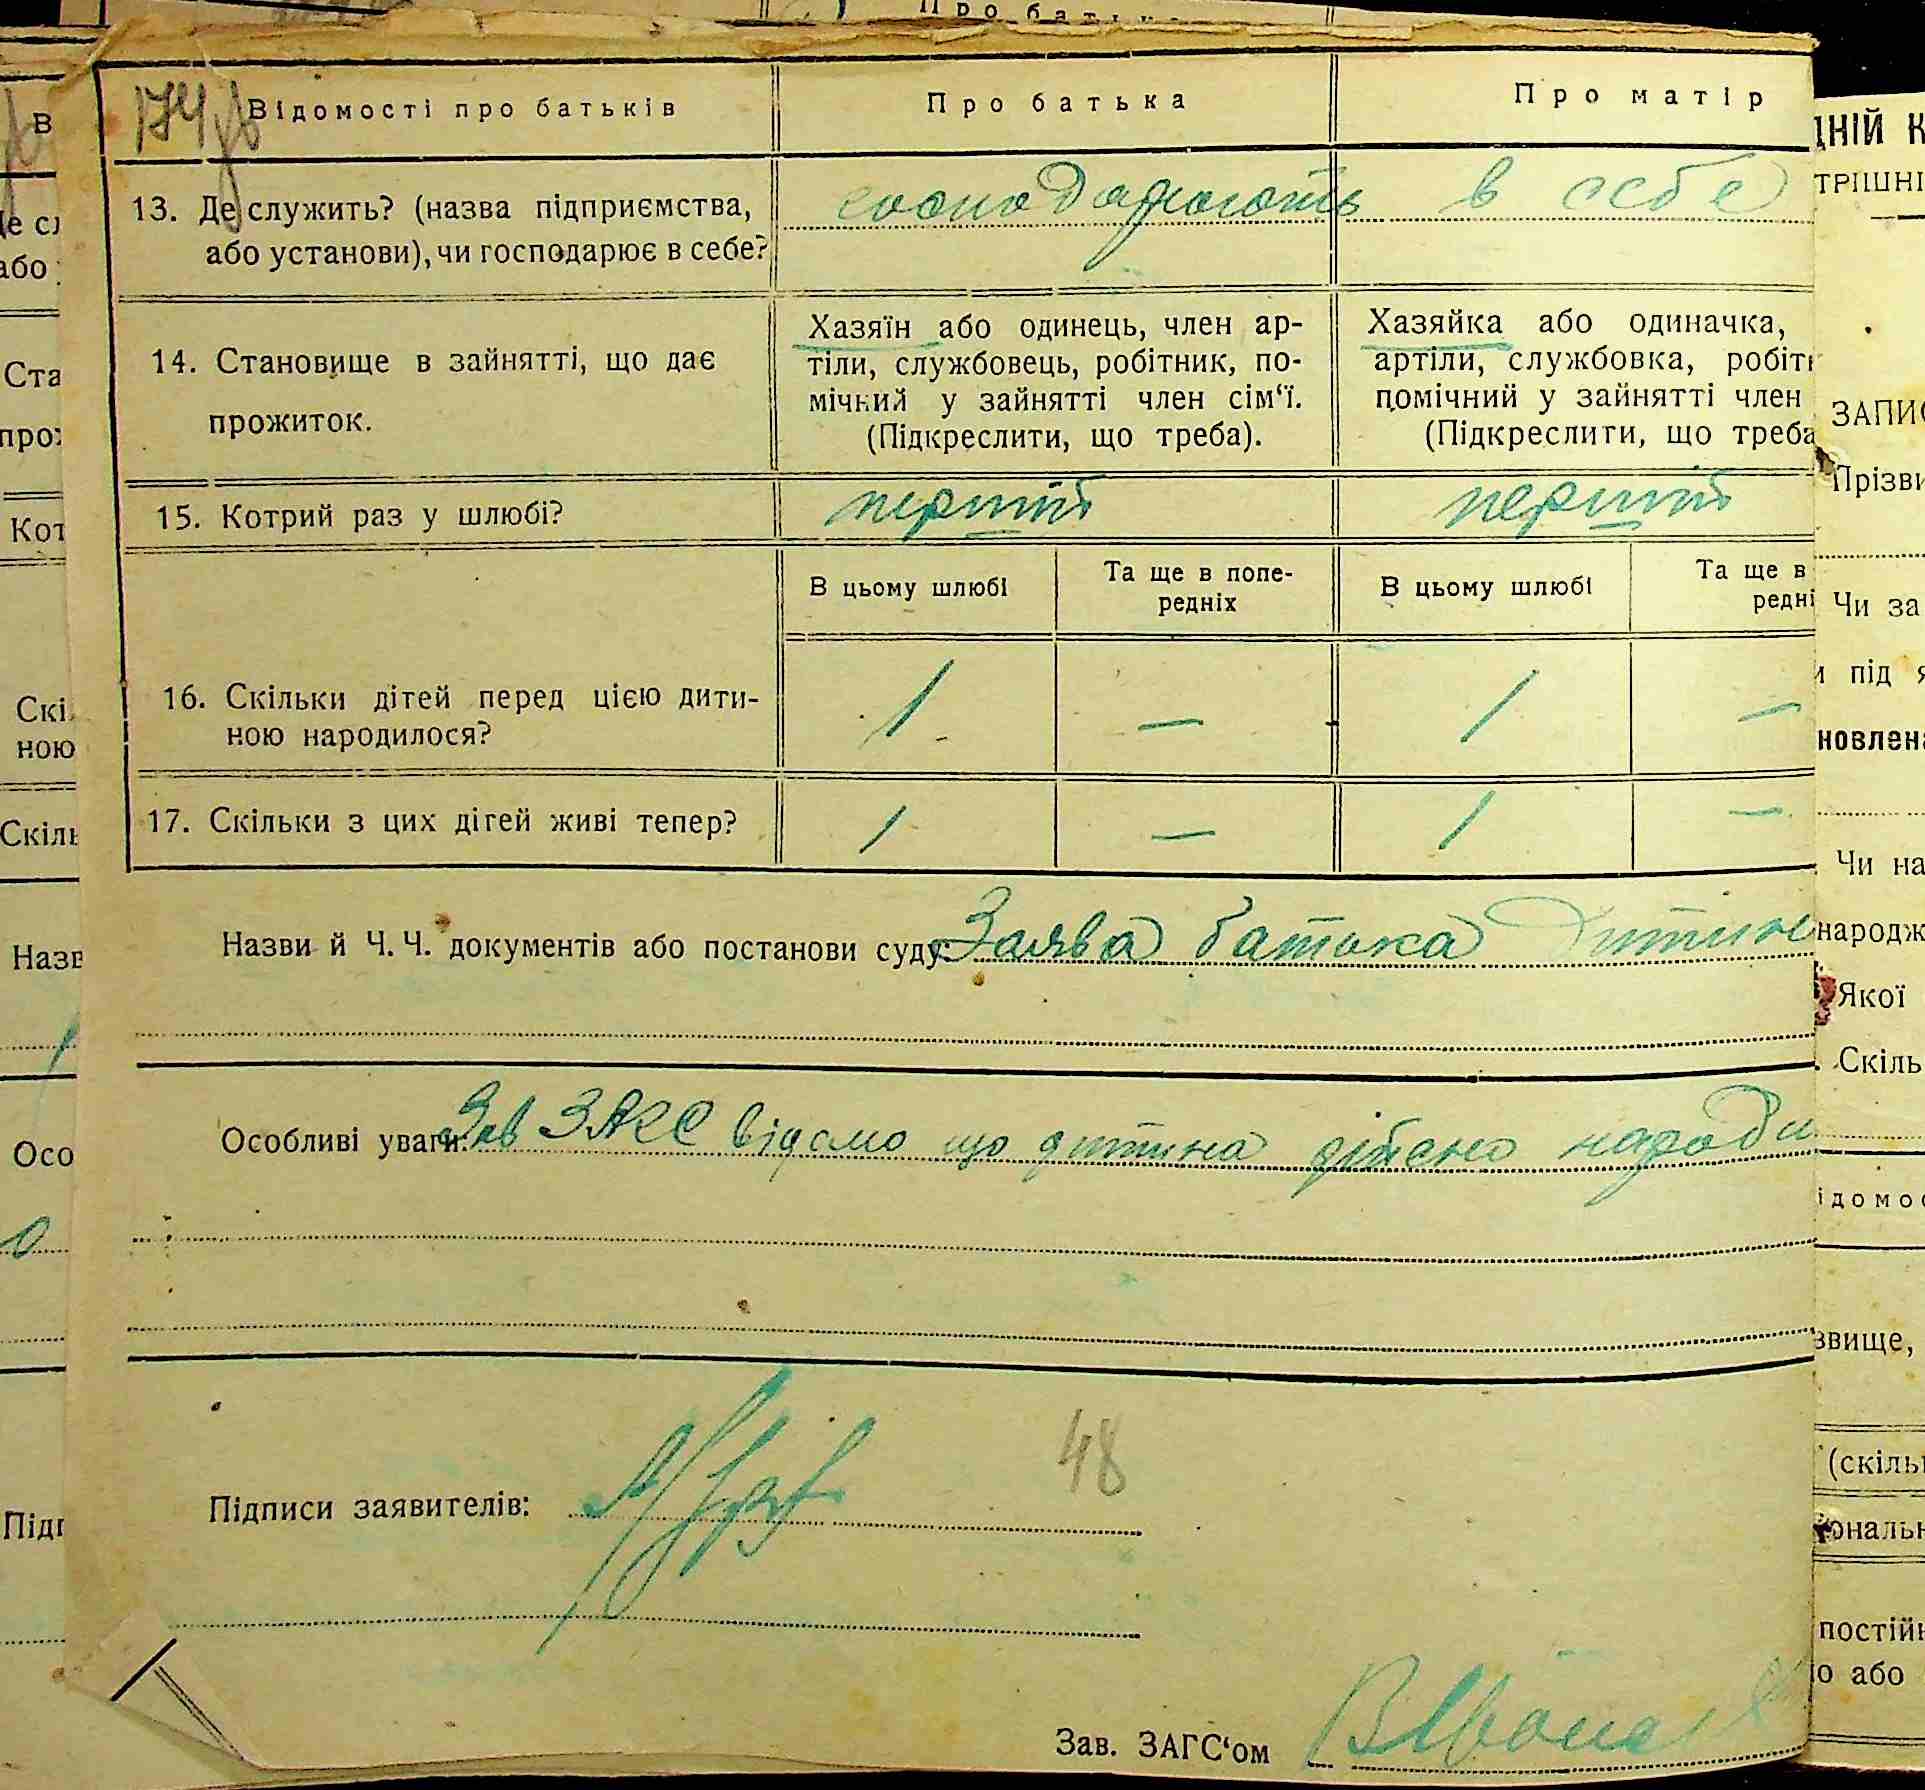 Про батька
174
Відомості про батьків
Про батька
Про матір
13. Де служить? (назва підприємства,
або установи), чи господарює в себе?
господарюють в себе
14. Становище в зайнятті, що дає
прожиток.
Хазяїн або одинець, член ар-
тіли, службовець, робітник, по-
мічний у зайнятті член сім‘ї.
(Підкреслити, що треба).
Хазяйка або одиначка,
артіли, службовка, робіт
помічний у зайнятті член
(Підкреслити, що треба
15. Котрий раз у шлюбі?
перший
перший
В цьому шлюбі
Та ще в попе-
редніх
В цьому шлюбі
Та ще в
редні
16. Скільки дітей перед цією дити-
ною народилося?
1
—
1
—
17. Скільки з цих дітей живі тепер?
1
—
1
—
Назви й Ч. Ч. документів або постанови суду: Заява батька дитин
Особливі уваги: Зав ЗАГС відомо що дитина дійсно народи
48
Підписи заявителів:
Зав. ЗАГС‘ом
В
е сл
або
Ста
про
Кот
Скі
ною
Скіль
Назв
Осо
Підп
ДНІЙ К
ТРІШНІ
ЗАПИС
Прізви
Чи за
під я
новлена
Чи на
народж
Якої
Скіль
ідомос
звище,
(скіль
ональн
постій
о або